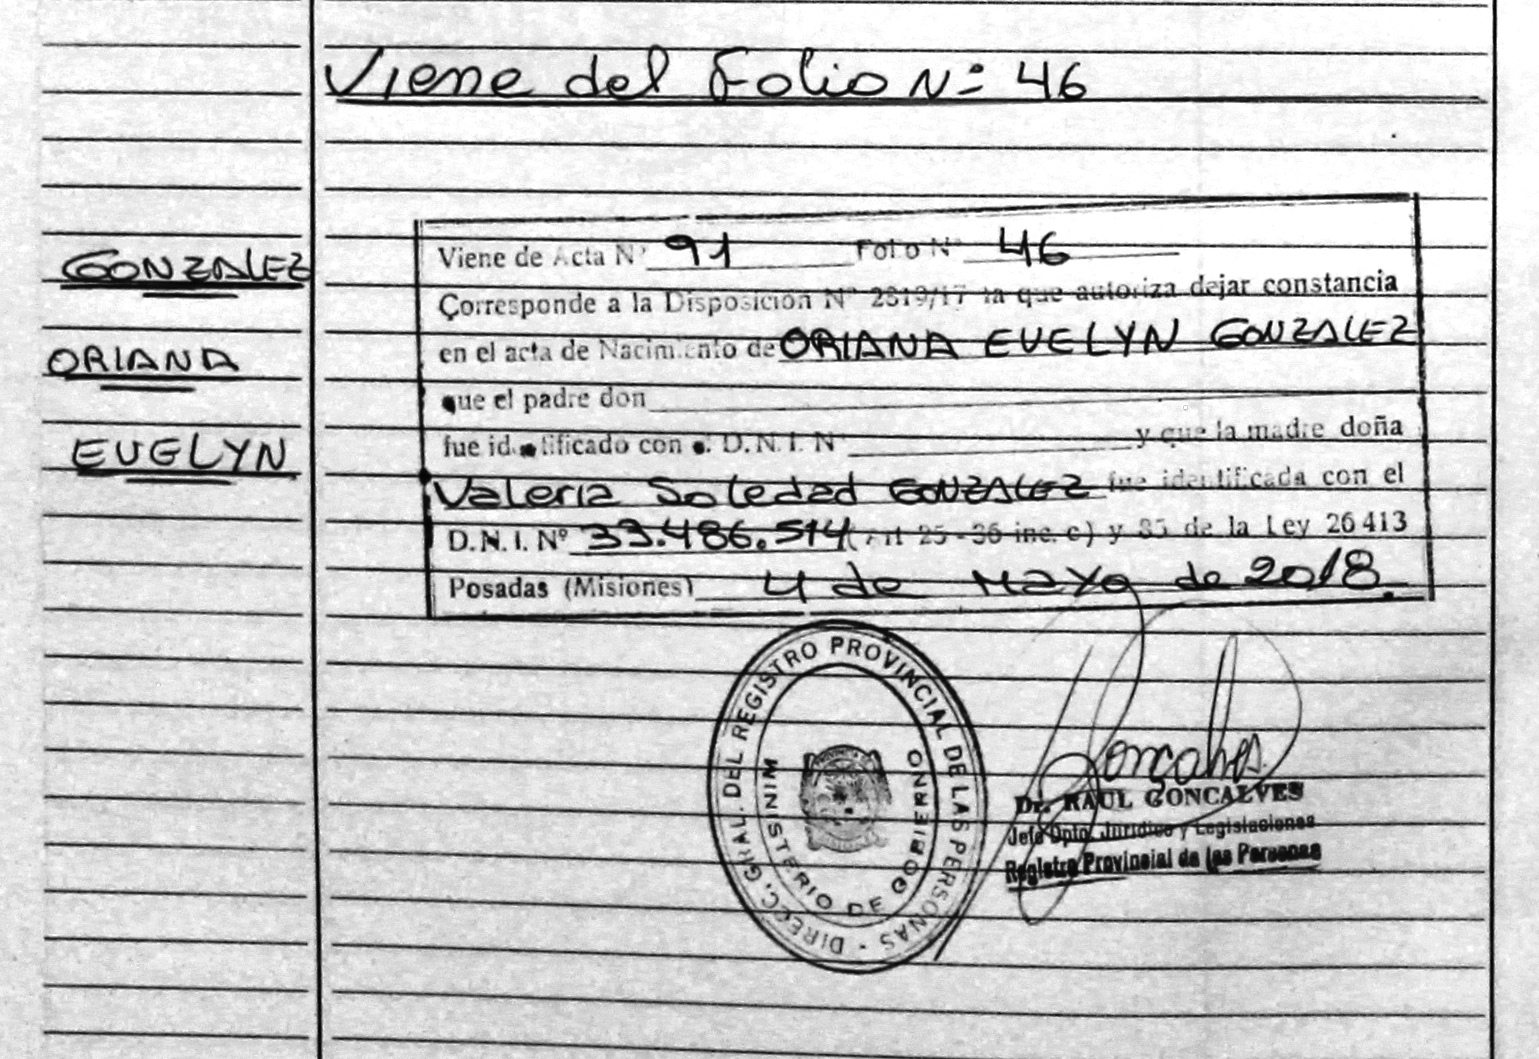 Viene del Folio Nº 46
Viene de Acta Nº 91 Folio Nº 46
GONZALEZ
Corresponde a la Disposición Nº 2819/17 la que autoriza dejar constancia
en el acta de Nacimiento de ORIANA EVELYN GONZALEZ
ORIANA
que el padre don
fue identificado con el D.N.I. Nº y que la madre doña
EVELYN
Valeria Soledad GONZALEZ fue identificada con el
D.N.I. Nº 33.486.514 (Art 25-36 inc. c) y 85 de la Ley 26413
Posadas (Misiones) 4 de Mayo de 2018.
DIRECC. GRAL. DEL REGISTRO PROVINCIAL DE LAS PERSONAS -
MINISTERIO DE GOBIERNO
Gonçalves
Dr. RAUL GONCALVES
Jefe Dpto. Jurídico y Legislaciones
Registro Provincial de las Personas